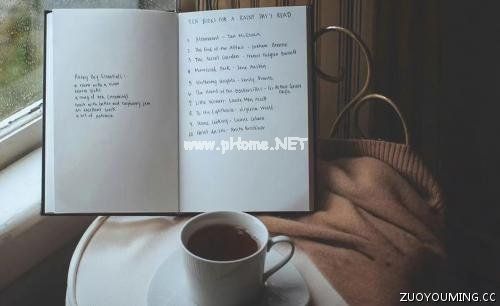 Rainy Day Essentials -
a room with a view
warm socks
a mug of tea (constant)
toast with butter and raspberry jam
an excellent book
a bit of patience
TEN BOOKS FOR A RAINY DAY'S READ
1. Atonement - Ian McEwan
2. The End of the Affair - Graham Greene
3. The Secret Garden - Frances Hodgson Burnett
4. Mansfield Park - Jane Austen
5. Wuthering Heights - Emily Brontë
6. The Hound of the Baskervilles - Sir Arthur Conan Doyle
7. Little Women - Louisa May Alcott
8. To the Lighthouse - Virginia Woolf
9. Home Cooking - Laurie Colwin
10. Hotel du Lac - Anita Brookner
www.pHome.NET
ZUOYOUMING.CC